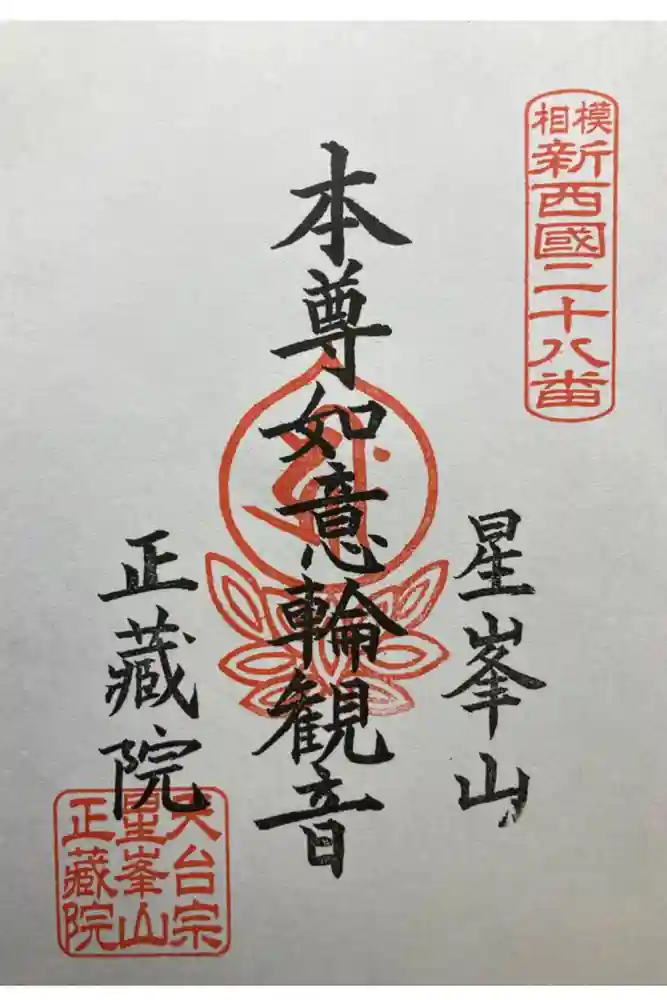 相模
新西國二十八番
本尊如意輪観音
星峯山
正藏院
天台宗
星峯山
正藏院